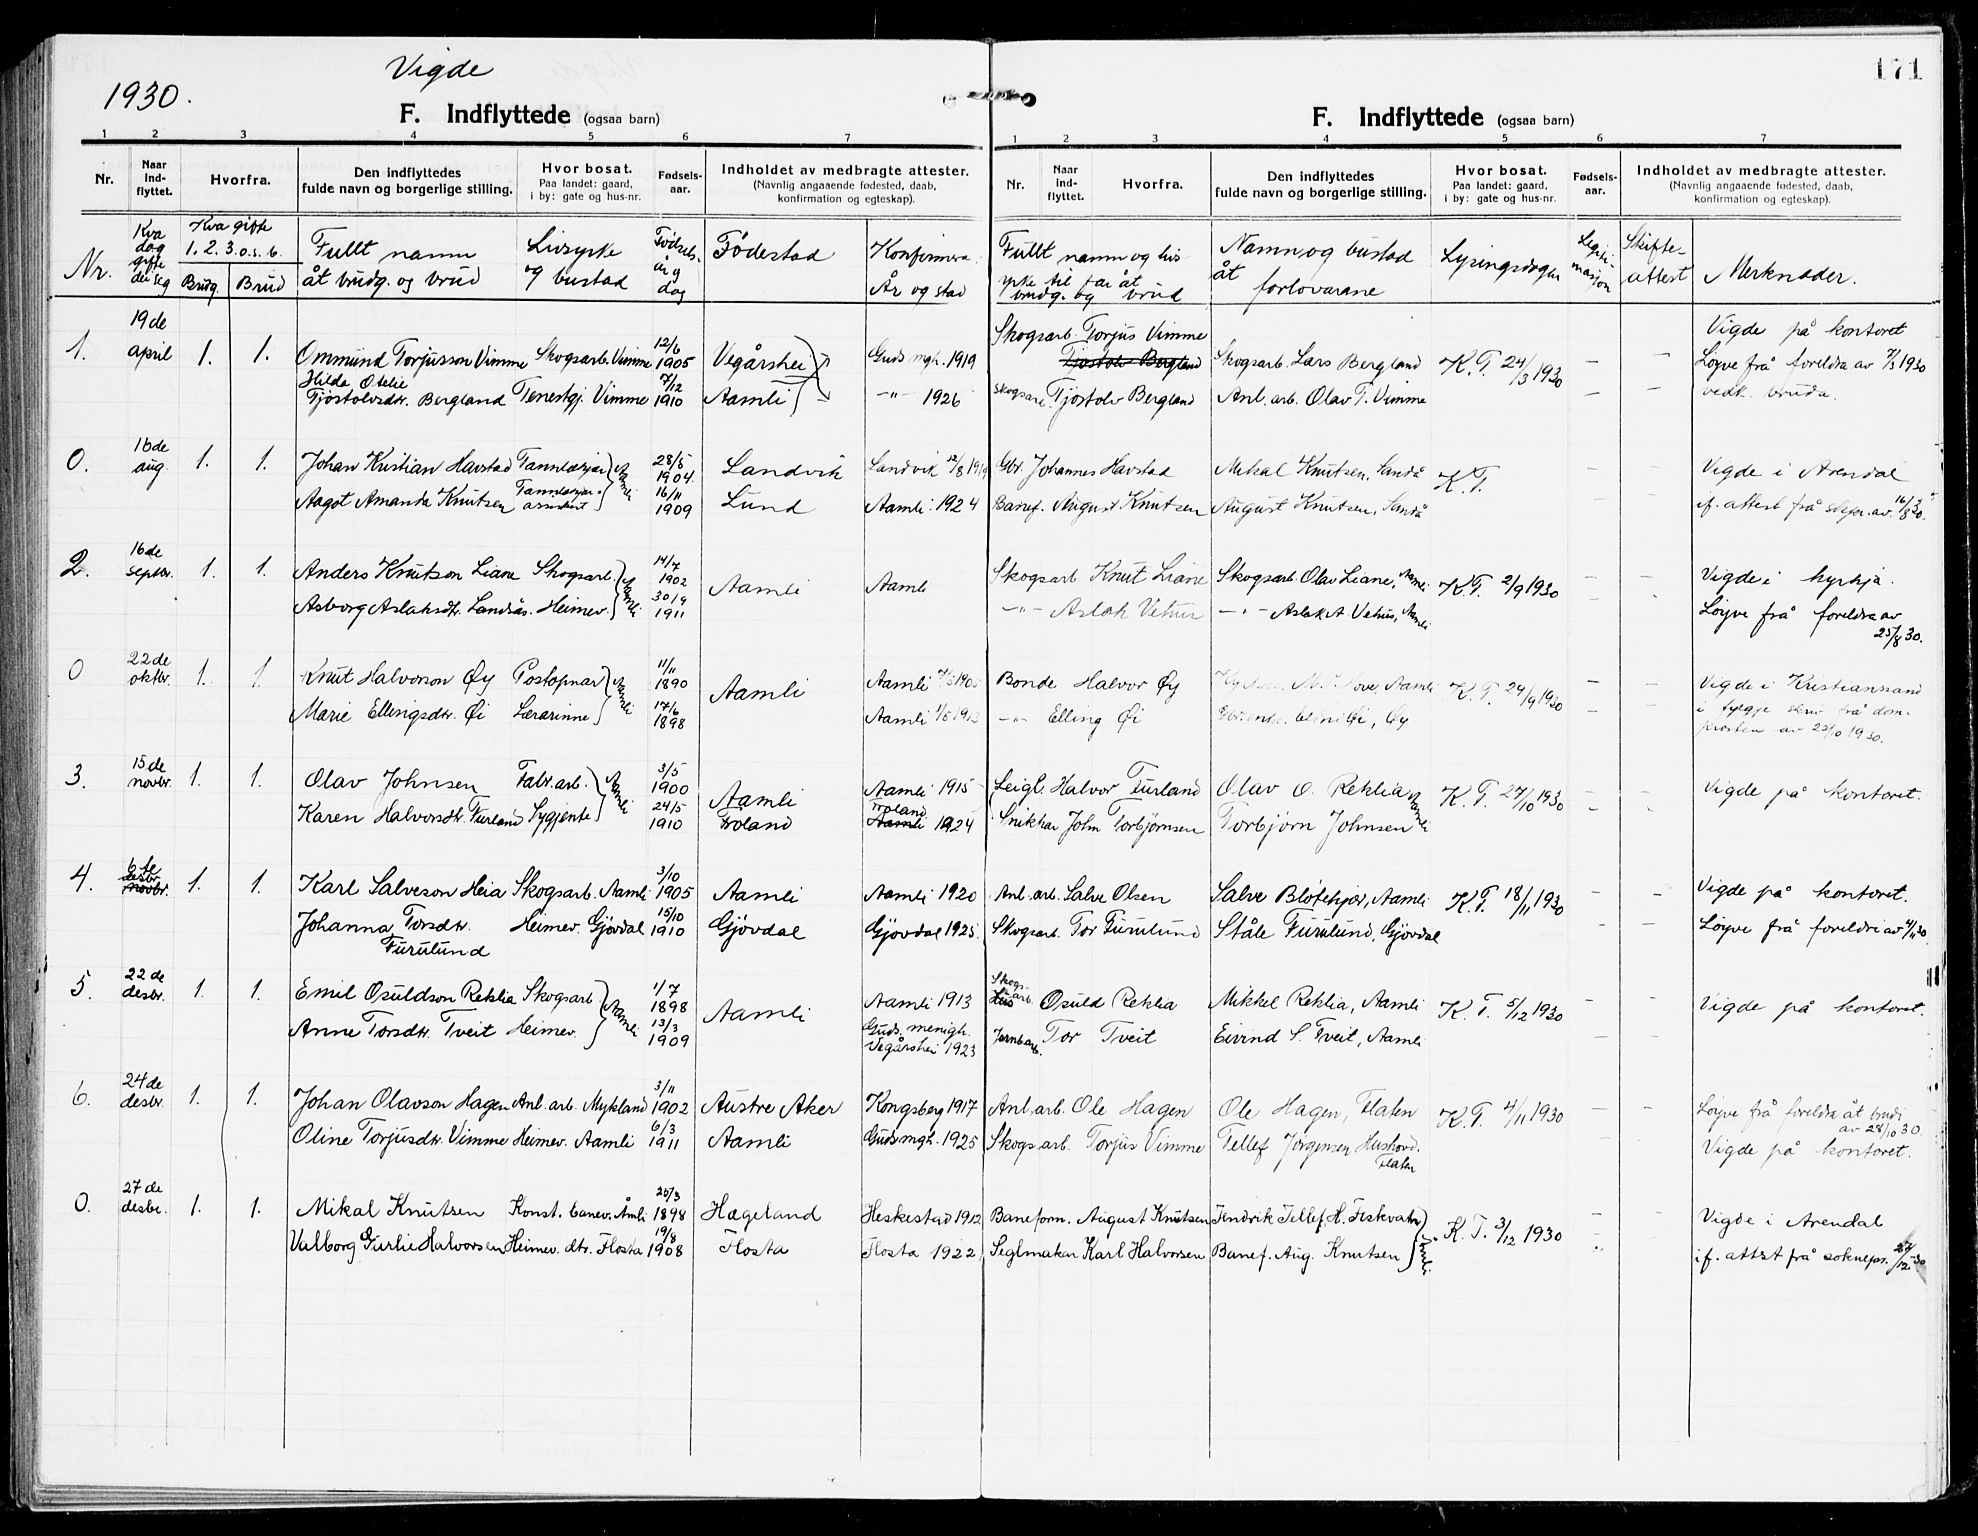 Vigde
1930.
171
F. Indflyttede (ogsaa barn)
1 2 3 4 5 6 7
Nr. Naar ind-flyttet. Hvorfra. Den indflyttedes fulde navn og borgerlige stilling. Hvor bosat. Paa landet: gaard, i by: gate og hus-nr. Fødsels-aar. Indholdet av medbragte attester. (Navnlig angaaende fødested, daab, konfirmation og egteskap).
F. Indflyttede (ogsaa barn)
1 2 3 4 5 6 7
Nr. Naar ind-flyttet. Hvorfra. Den indflyttedes fulde navn og borgerlige stilling. Hvor bosat. Paa landet: gaard, i by: gate og hus-nr. Fødsels-aar. Indholdet av medbragte attester. (Navnlig angaaende fødested, daab, konfirmation og egteskap).
Nr. Kva dag gifte dei seg Kva gifte 1. 2. 3. o.s.b. Brudg. Brud Fullt namn åt brudg. og brud Livsyrke og bustad Fødsels-år og dag Fødestad Konfirmera År og stad Fullt namn og livs-yrke til far åt brudg. og brud Namn og bustad åt forlovarane Lysingsdagen Legiti-masjon Skifte-attest Merknader.
1. 19de april 1. 1. Ommund Torjusson Vimme Skogsarb. Vimme 12/6 1905 Vegårshei Guds mgh. 1919 Skogsarb. Torjus Vimme Skogsarb. Lars Bergland K.T. 24/3 1930 – – Vigde på kontoret
Hilda Otelie Tjostolvsdtr. Bergland Tenestgj. Vimme 7/12 1910 Aamli -"- 1926 Tjostolv Bergland Skogsarb Tjostolv Bergland Anl. arb. Olav T. Vimme – – Løyve frå foreldra av 7/3 1930 vedk. bruda.
0. 16de aug. 1. 1. Johan Kristian Havstad Tannlækjar Aamli 28/5 1904. Landvik Landvik 12/8 1919 Gbr. Johannes Havstad Mikal Knutsen, Sandå K.T. – Vigde i Arendal
Aagot Amanda Knutsen Tannlækjar assistent 16/11 1909 Lund Aamli 1924 Banef. August Knutsen August Knutsen, Sandå – if. attest frå sokepr. av. 16/8 30.
2. 16de septbr. 1. 1. Anders Knutson Liane Skogsarb. Aamli 14/7 1902 Aamli Aamli Skogsarb Knut Liane Skogsarb. Olav Liane, Aamli K.T. 2/9 1930 – – Vigde i kyrkja.
Asborg Aslaksdtr. Landsås. Heimev. 30/9 1911 -"- Aslak Vehus -"- Aslak A. Vehus, Aamli – Løyve frå foreldra av 25/8 30.
0 22de oktbr. 1. 1. Knut Halvorson Øy Postopnar Aamli 11/11 1890 Aamli Aamli 1905 Bonde Halvor Øy Aamli K.T. 29/9 1930 – – Vigde i Kristianssand
Marie Ellingsdtr. Øi Lærarinne 17/6 1898 Aamli 1913 -"- Elling Øi Øi, Øy – – i fylgje skriv frå dom-prosten av 23/10 1930.
3. 15de novbr. 1. 1. Olav Johnsen Fabr. arb. Aamli 3/5 1900 Aamli Aamli 1915 Leigl. Halvor Furland Olav O. Reklia Aamli K.T. 27/10 1930 – – Vigde på kontoret.
Karen Halvorsdtr. Furland Sygjente 24/5 1910 Froland Froland Aamli 1924 Snikkar John Torbjørnsen Torbjørn Johnsen – –
4. 6te desbr. novbr. 1. 1. Karl Salveson Heia Skogsarb. Aamli 3/10 1905 Aamli Aamli 1920 Anl. arb. Salve Olsen Salve Bløtekjær, Aamli K.T. 18/11 1930 – – Vigde på kontoret.
Johanna Torsdtr. Furulund Heimev. Gjøvdal 15/10 1910 Gjøvdal Gjøvdal 1925 Skogsarb. Tor Furulund Ståle Furulund, Gjøvdal – – Løyve frå foreldri av 4/11 30
5. 22de desbr. 1. 1. Emil Osuldson Reklia Skogsarb. Aamli 1/7 1898 Aamli Aamli 1913 Skogs-arb. Osuld Reklia Mikkel Reklia, Aamli K.T. 5/12 1930 – – Vigde på kontoret.
Anne Torsdtr. Tveit Heimev. 13/3 1909 Guds menigh. Vegårshei 1923 Jernbarb. Tor Tveit Eivind S. Tveit, Aamli – –
6. 24de desbr. 1. 1. Johan Olavson Hagen Anl. arb. Mykland 3/11 1902 Austre Aker Kongsberg 1917 Anl. arb. Ole Hagen Ole Hagen, Flaten K.T. 4/11 1930 – – Løyve frå foreldra åt brudi av 28/10 30.
Oline Torjusdtr. Vimme Heimev. Aamli 6/3 1911 Aamli Guds mgh. 1925 Skogs. arb. Torjus Vimme Tellef Jørgensen Hushovd. Flaten – – Vigde på kontoret.
0. 27de desbr. 1. 1. Mikal Knutsen Konst. banev. Åmli 25/3 1898 Hægeland Heskestad 1912 Baneform. August Knutsen Fendrik Tellef H. Fiskvatn K.T. 3/12 1930 – – Vigde i Arendal
Valborg Gurlie Halvorsen Heimev. dtr. Flosta 19/8 1908 Flosta Flosta 1922 Seglmakar Karl Halvorsen Banef. Aug. Knutsen Åmli. – if. attest frå soknepr. 27/12 30